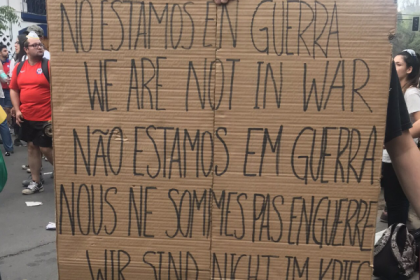 NO ESTAMOS EN GUERRA
WE ARE NOT IN WAR
NÃO ESTAMOS EM GUERRA
NOUS NE SOMMES PAS EN GUERRE
WIR SIND NICHT IM